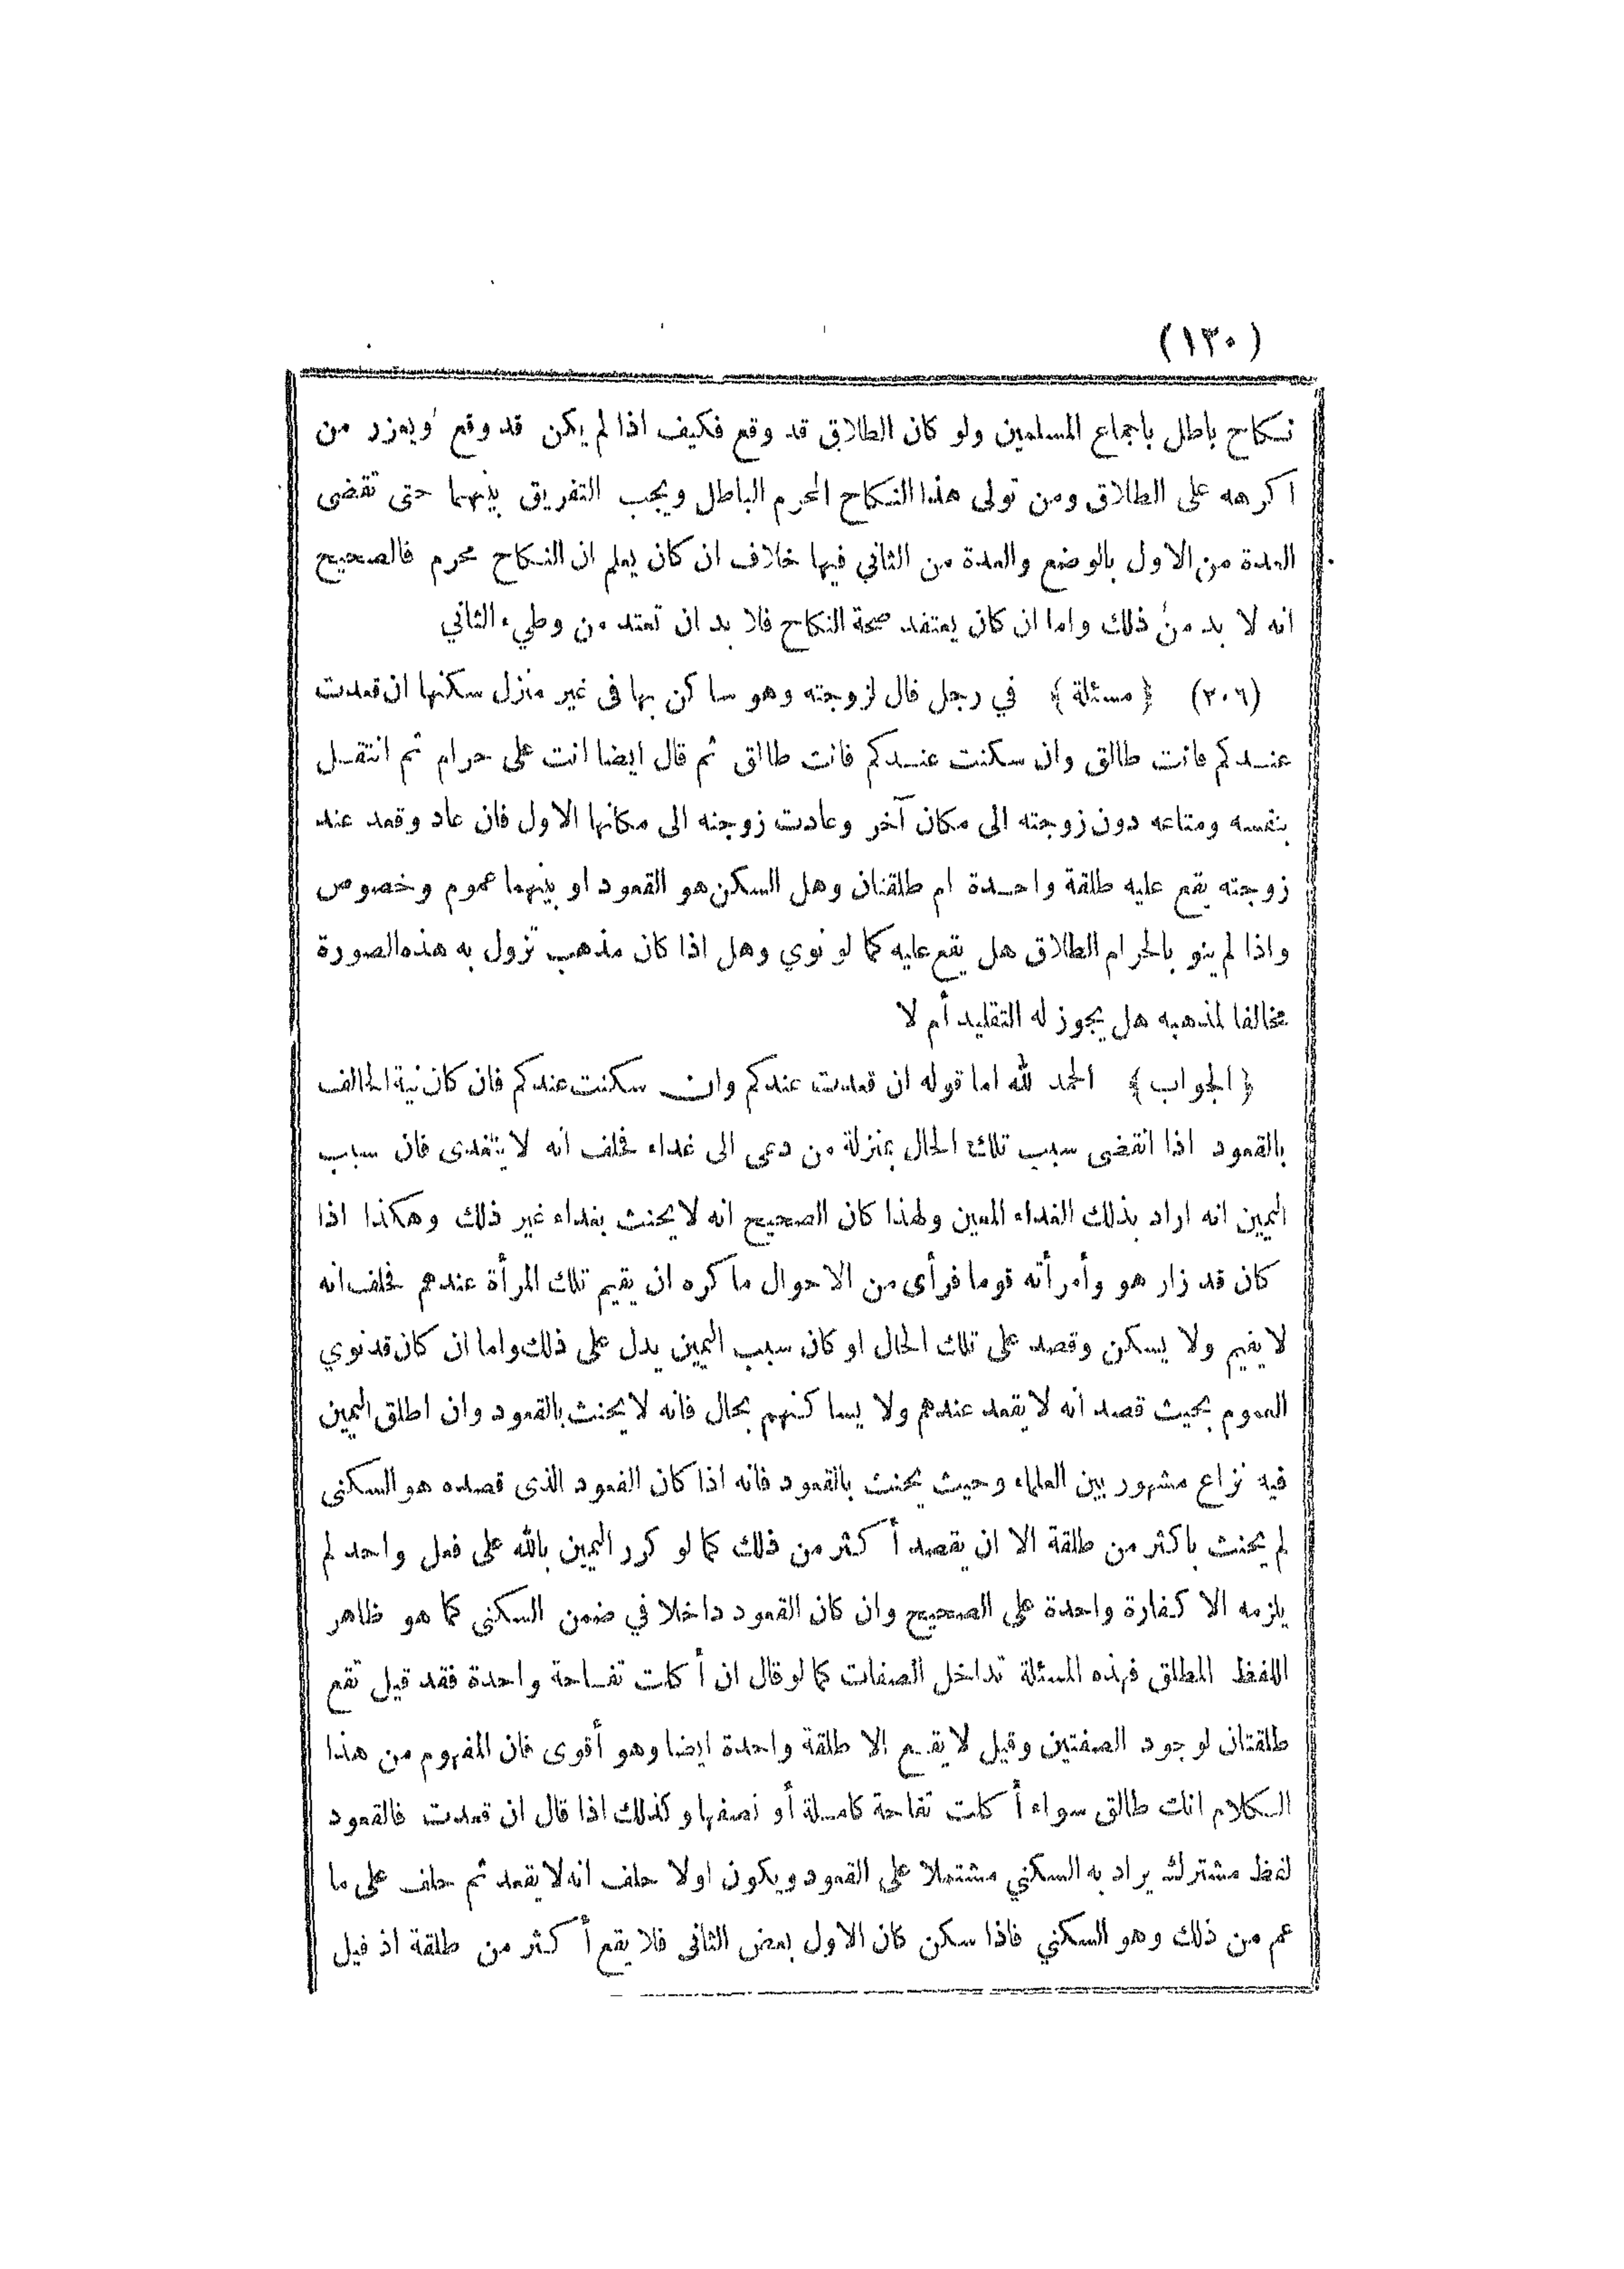 (١٣٠)
نكاح باطل باجماع المسلمين ولو كان الطلاق قد وقع فكيف اذا لم يكن قد وقع ويعزر من
اكرهه على الطلاق ومن تولى هذا النكاح المحرم الباطل ويجب التفريق بينهما حتى تقضى
العدة من الاول بالوضع والعدة من الثاني فيها خلاف ان كان يعلم ان النكاح محرم فالصحيح
انه لا بد من ذلك واما ان كان يعتقد صحة النكاح فلا بد ان تعتد من وطيء الثاني
(٣٠٦) ﴿ مسئلة ﴾ في رجل قال لزوجته وهو ساكن بها فى غير منزل سكنها ان قعدت
عندكم فانت طالق وان سكنت عندكم فانت طالق ثم قال ايضا انت على حرام ثم انتقل
بنفسه ومتاعه دون زوجته الى مكان آخر وعادت زوجته الى مكانها الاول فان عاد وقعد عند
زوجته يقع عليه طلقة واحدة ام طلقتان وهل السكن هو القعود او بينهما عموم وخصوص
واذا لم ينو بالحرام الطلاق هل يقع عليه كما لو نوي وهل اذا كان مذهب تزول به هذه الصورة
مخالفا لمذهبه هل يجوز له التقليد أم لا
﴿ الجواب ﴾ الحمد لله اما قوله ان قعدت عندكم وان سكنت عندكم فان كان نية الحالف
بالقعود اذا انقضى سبب تلك الحال بمنزلة من دعى الى غداء فحلف انه لا يتغدى فان سبب
اليمين انه اراد بذلك الغداء المعين ولهذا كان الصحيح انه لا يحنث بغداء غير ذلك وهكذا اذا
كان قد زار هو وأمرأته قوما فرأى من الاحوال ما كره ان يقيم تلك المرأة عندهم فحلف انه
لا يقيم ولا يسكن وقصد على تلك الحال او كان سبب اليمين يدل على ذلك واما ان كان قد نوي
العموم بحيث قصد انه لا يقعد عندهم ولا يساكنهم بحال فانه لا يحنث بالقعود وان اطلق اليمين
فيه نزاع مشهور بين العلماء وحيث يحنث بالقعود فانه اذا كان القعود الذى قصده هو السكنى
لم يحنث باكثر من طلقة الا ان يقصد أكثر من ذلك كما لو كرر اليمين بالله على فعل واحد لم
يلزمه الا كفارة واحدة على الصحيح وان كان القعود داخلا في ضمن السكنى كما هو ظاهر
اللفظ المطلق فهذه المسئلة تداخل الصفات كما لو قال ان أكلت تفاحة واحدة فقد قيل تقع
طلقتان لوجود الصفتين وقيل لا يقع الا طلقة واحدة ايضا وهو أقوى فان المفهوم من هذا
الكلام انك طالق سواء أكلت تفاحة كاملة أو نصفها وكذلك اذا قال ان قعدت فالقعود
لفظ مشترك يراد به السكني مشتملا على القعود ويكون اولا حلف انه لا يقعد ثم حلف على ما
عم من ذلك وهو السكني فاذا سكن كان الاول بعض الثانى فلا يقع أكثر من طلقة اذ قيل